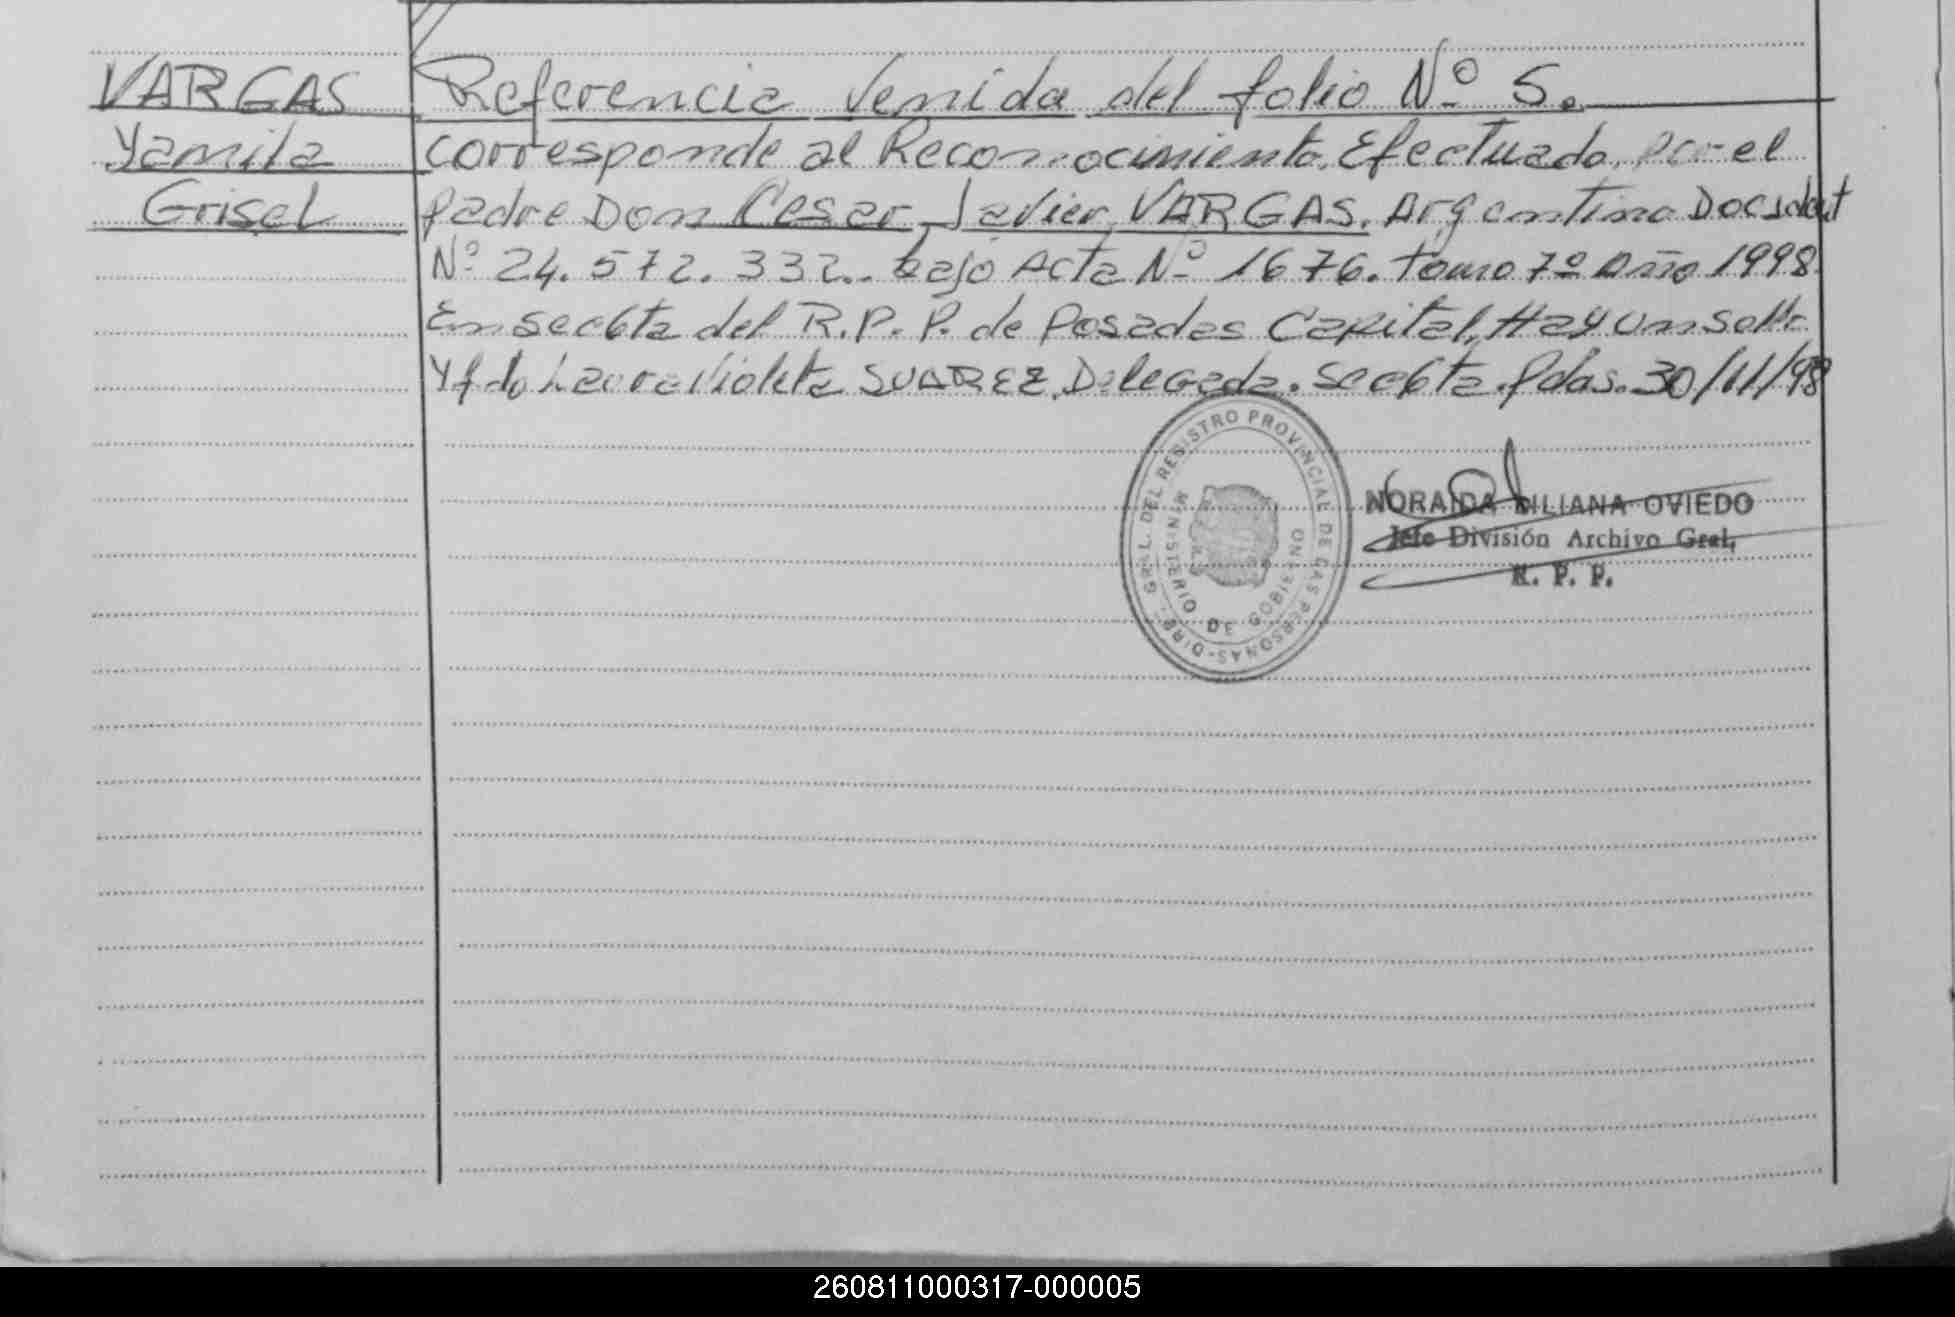 VARGAS
Yamila
Grisel
Referencia Venida del folio Nº 5.
corresponde al Reconocimiento Efectuado por el
padre Don Cesar Javier VARGAS. Argentino Doc
Nº 24.572.332.. bajo Acta Nº 1676. tomo 7º Año 1998
En secc 6ta del R.P.P. de Posadas Capital, Hay un sello
y fdo Laura Violeta SUAREZ. Delegada. secc 6ta. Pdas. 30/11/98
DIREC. GRAL. DEL REGISTRO PROVINCIAL DE LAS PERSONAS
MINISTERIO DE GOBIERNO
NORAIDA LILIANA OVIEDO
Jefe División Archivo Gral.
R. P. P.
260811000317-000005